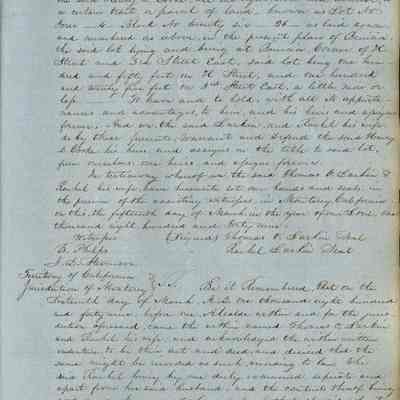 a certain tract or parcel of land, known as Lot No.
Four - 4 - Block No twenty six - 26 - as laid down
and numbered as above, in the present plan of Benicia,
the said lot lying and being at Corner of H
Street and 3rd Street East, said lot being one hun
dred and fifty feet on H Street, and one hundred
and twenty five feet on 3rd Street East, a little more or
less. To have and to hold, with all its appurte
nances and advantages, to him, and his heirs and assigns
forever. And we the said Larkin, and Rachel his wife
do by these presents, warrant and defend the said Henry
his heirs and assigns in the title to said lot,
from ourselves, our heirs and assigns forever.
In testimony whereof we the said Thomas O. Larkin &
Rachel his wife, have hereunto set our hands and seals, in
the presence of the executing witnesses, in Monterey California
on this the fifteenth day of March in the year of our Lord one
thousand eight hundred and forty nine.
Witnesses (Signed) Thomas O. Larkin Seal
B. Phelps Rachel Larkin Seal
J. L.
Territory of California
Jurisdiction of Monterey Be it Remembered, that on the
Sixteenth day of March, A.D. one thousand eight hundred
and forty nine, before me Alcalde within and for the juris
diction aforesaid, came the within named Thomas O Larkin
and Rachel his wife, and acknowledged the within written
indenture to be their act and deed, and desired that the
same might be recorded as such, according to law. She
said Rachel being by me duly examined separate and
apart from her said husband, and the contents thereof being